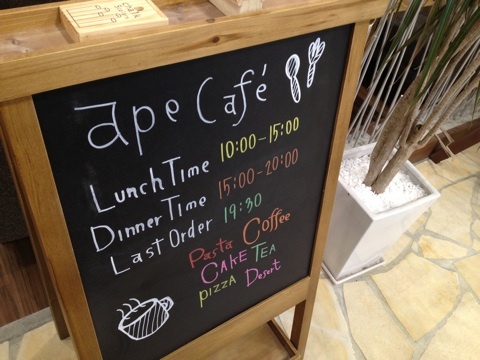 ape Café
Lunch Time 10:00-15:00
Dinner Time 15:00-20:00
Last Order 19:30
Pasta Coffee
CAKE TEA
pizza Desert